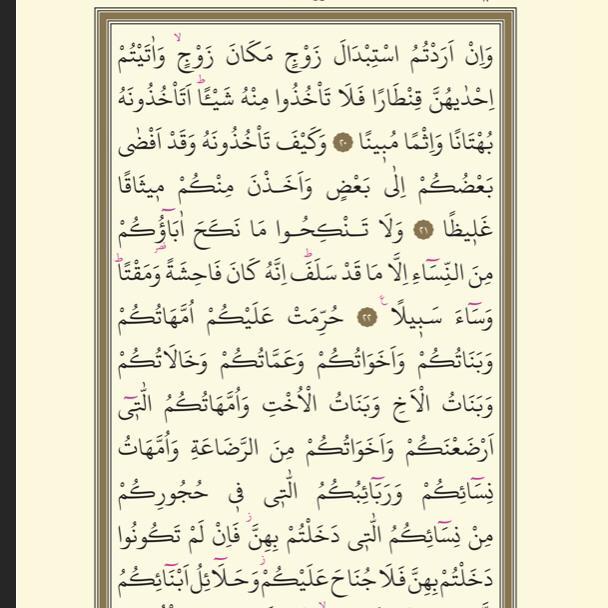 وَاِنْ اَرَدْتُمُ اسْتِبْدَالَ زَوْجٍ مَكَانَ زَوْجٍۙ وَاٰتَيْتُمْ
اِحْدٰيهُنَّ قِنْطَارًا فَلَا تَأْخُذُوا مِنْهُ شَيْـًٔاۜ اَتَأْخُذُونَهُ
بُهْتَانًا وَاِثْمًا مُب۪ينًا ﴿٢٠﴾ وَكَيْفَ تَأْخُذُونَهُ وَقَدْ اَفْضٰى
بَعْضُكُمْ اِلٰى بَعْضٍ وَاَخَذْنَ مِنْكُمْ م۪يثَاقًا
غَل۪يظًا ﴿٢١﴾ وَلَا تَنْكِحُوا مَا نَكَحَ اٰبَٓاؤُ۬كُمْ
مِنَ النِّسَٓاءِ اِلَّا مَا قَدْ سَلَفَۜ اِنَّهُ كَانَ فَاحِشَةً وَمَقْتًاۜ
وَسَٓاءَ سَب۪يلًا۟ ﴿٢٢﴾ حُرِّمَتْ عَلَيْكُمْ اُمَّهَاتُكُمْ
وَبَنَاتُكُمْ وَاَخَوَاتُكُمْ وَعَمَّاتُكُمْ وَخَالَاتُكُمْ
وَبَنَاتُ الْاَخِ وَبَنَاتُ الْاُخْتِ وَاُمَّهَاتُكُمُ الّٰت۪ٓي
اَرْضَعْنَكُمْ وَاَخَوَاتُكُمْ مِنَ الرَّضَاعَةِ وَاُمَّهَاتُ
نِسَٓائِكُمْ وَرَبَٓائِبُكُمُ الّٰت۪ي ف۪ي حُجُورِكُمْ
مِنْ نِسَٓائِكُمُ الّٰت۪ي دَخَلْتُمْ بِهِنَّۘ فَاِنْ لَمْ تَكُونُوا
دَخَلْتُمْ بِهِنَّ فَلَا جُنَاحَ عَلَيْكُمْۘ وَحَلَٓائِلُ اَبْنَٓائِكُمُ